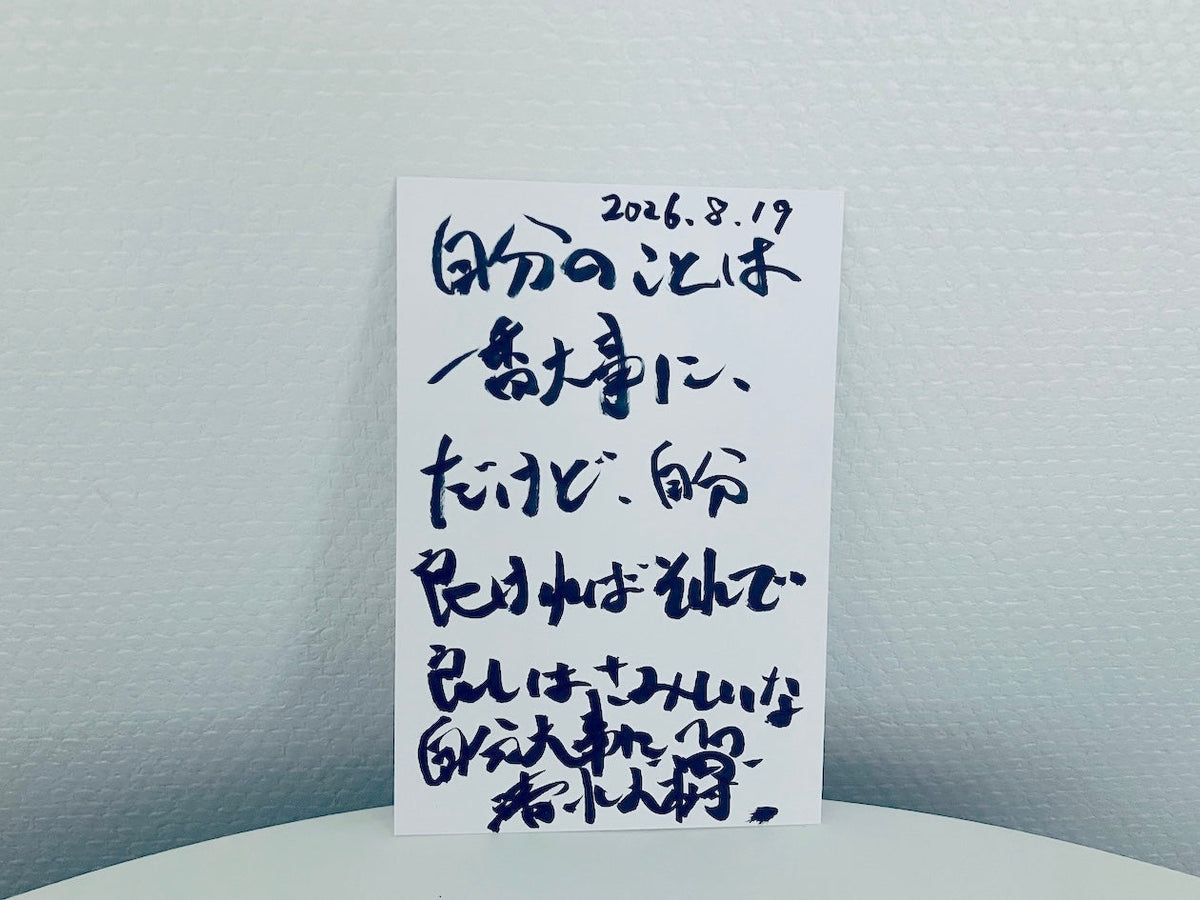 2026.8.19
自分のことは
一番大事に、
だけど、自分
良ければそれで
良しはさみしいな
自分大事に